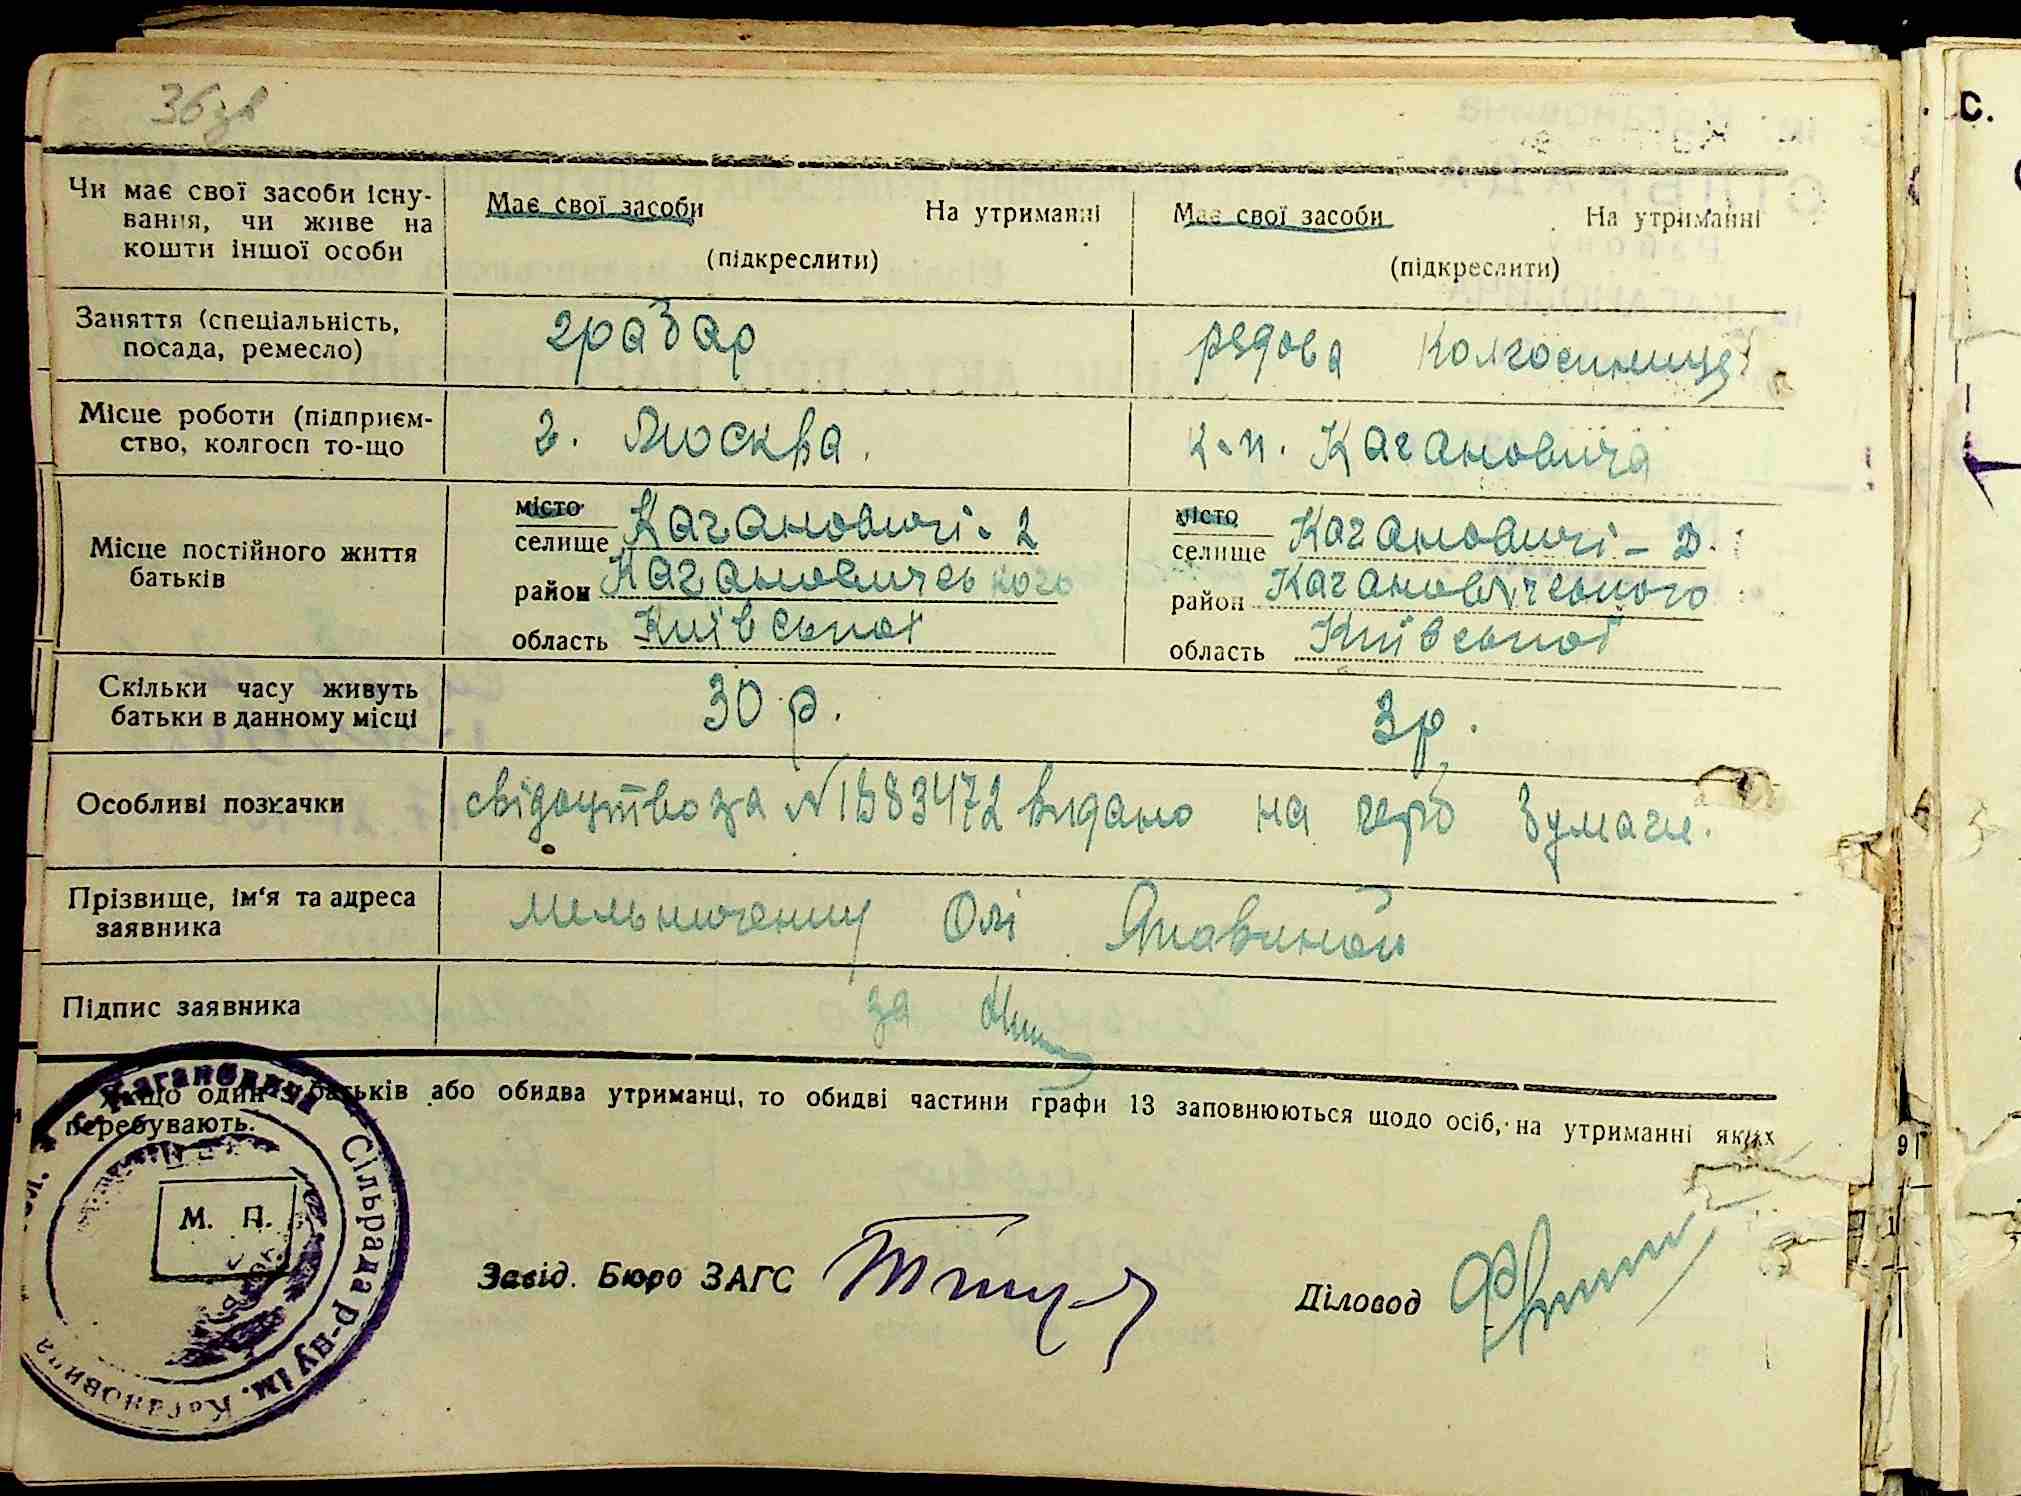 36зв
Чи має свої засоби існу-
вання, чи живе на
кошти іншої особи
Має свої засоби На утриманні
(підкреслити)
Має свої засоби На утриманні
(підкреслити)
Заняття (спеціальність,
посада, ремесло)
грабар
рядова колгоспниця
Місце роботи (підприєм-
ство, колгосп то-що
г. Москва.
к-п. Кагановича
Місце постійного життя
батьків
місто
селище Кагановичі-2
район Кагановичського
область Київської
місто
селище Кагановичі-2.
район Кагановічського
область Київської
Скільки часу живуть
батьки в данному місці
30 р.
3 р.
Особливі позначки
свідоцтво за № 1383472 видано на герб бумаги.
Прізвище, ім'я та адреса
заявника
Мельниченку Олі
Підпис заявника
за
Якщо один з батьків або обидва утриманці, то обидві частини графи 13 заповнюються щодо осіб, на утриманні яких
перебувають.
М. П.
Кагановичі Сільрада р-ну ім. Кагановича
Завід. Бюро ЗАГС
Діловод
с.